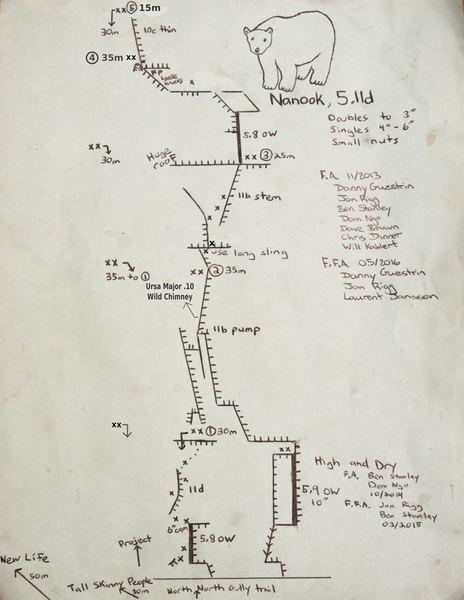 xx ⑤ 15m
30m
10c thin
④ 35m xx
BP
loose
blocks
Nanook, 5.11d
Doubles to 3"
Singles 4"-6"
Small nuts
5.8 OW
xx
30m
Huge
roof
xx ③ 25m
F.A. 11/2013
Danny Guestrin
Jon Rigg
Ben Stanley
Dom Ngo
Dave Brown
Chris Dinner
Will Kahlert
11b stem
F.F.A 05/2016
Danny Guestrin
Jon Rigg
Laurent Janssen
use long sling
xx
35m to ①
xx ② 35m
Ursa Major .10
Wild Chimney
11b pump
xx
xx ① 30m
xx
High and Dry
F.A. Ben Stanley
Dom Ngo
10/2014
F.F.A. Jon Rigg
Ben Stanley
03/2015
11d
5.9 OW
10"
6" cam
5.8 OW
Project
New Life
50m
Tall Skinny People
30m
North, North Gully trail